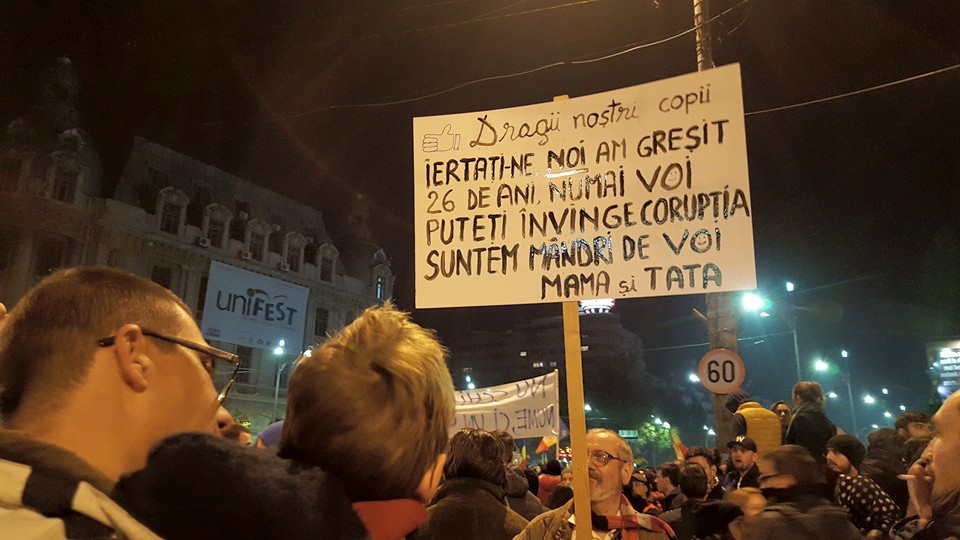 Dragii noștri copii
IERTAȚI-NE NOI AM GREȘIT
26 DE ANI, NUMAI VOI
PUTEȚI ÎNVINGE CORUPȚIA
SUNTEM MÂNDRI DE VOI
MAMA și TATA
uniFEST
60